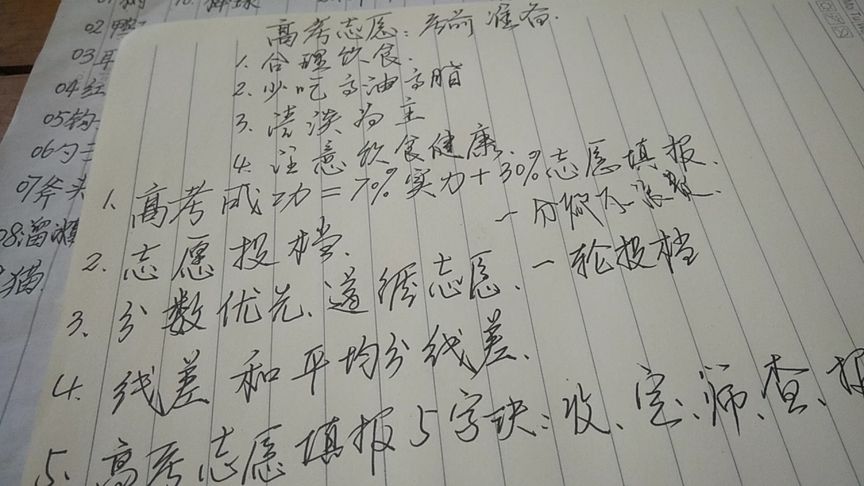 高考志愿：考前准备.
1. 合理饮食.
2. 少吃高油高脂
3. 清淡为主
4. 注意饮食健康.
1. 高考成功=70%实力+30%志愿填报.
2. 志愿投档.
3. 分数优先、遵循志愿、一轮投档
4. 线差和平均分线差.
5. 高考志愿填报5字诀：收、定、师、查、报
02
03
04 红
05 钩
06 勺
07 斧头
08 溜
猫